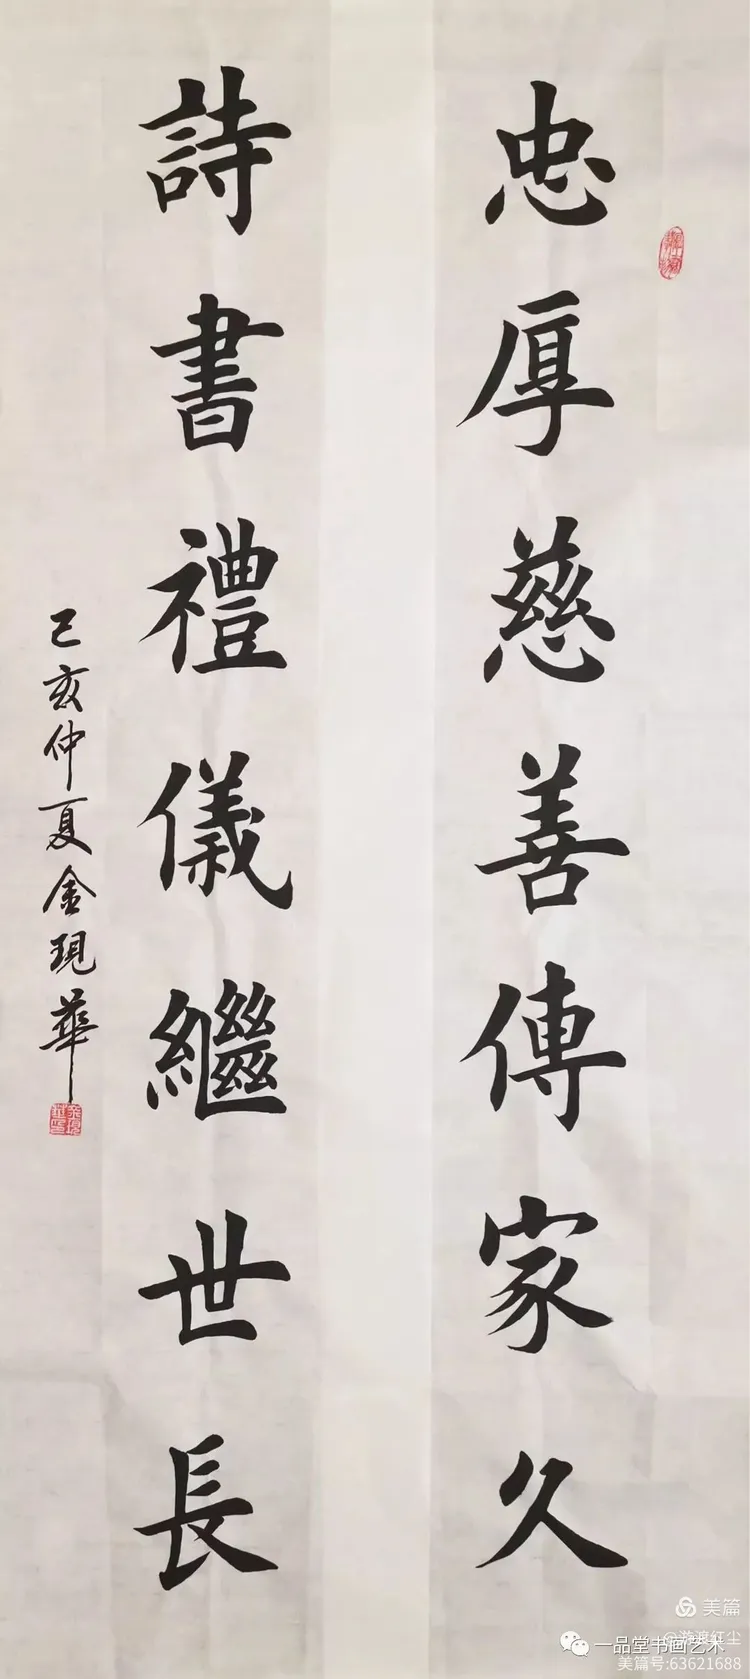 忠厚慈善傳家久
詩書禮儀繼世長
己亥仲夏金現華
美篇
一品堂书画艺术
@游渡红尘
美篇号:63621688